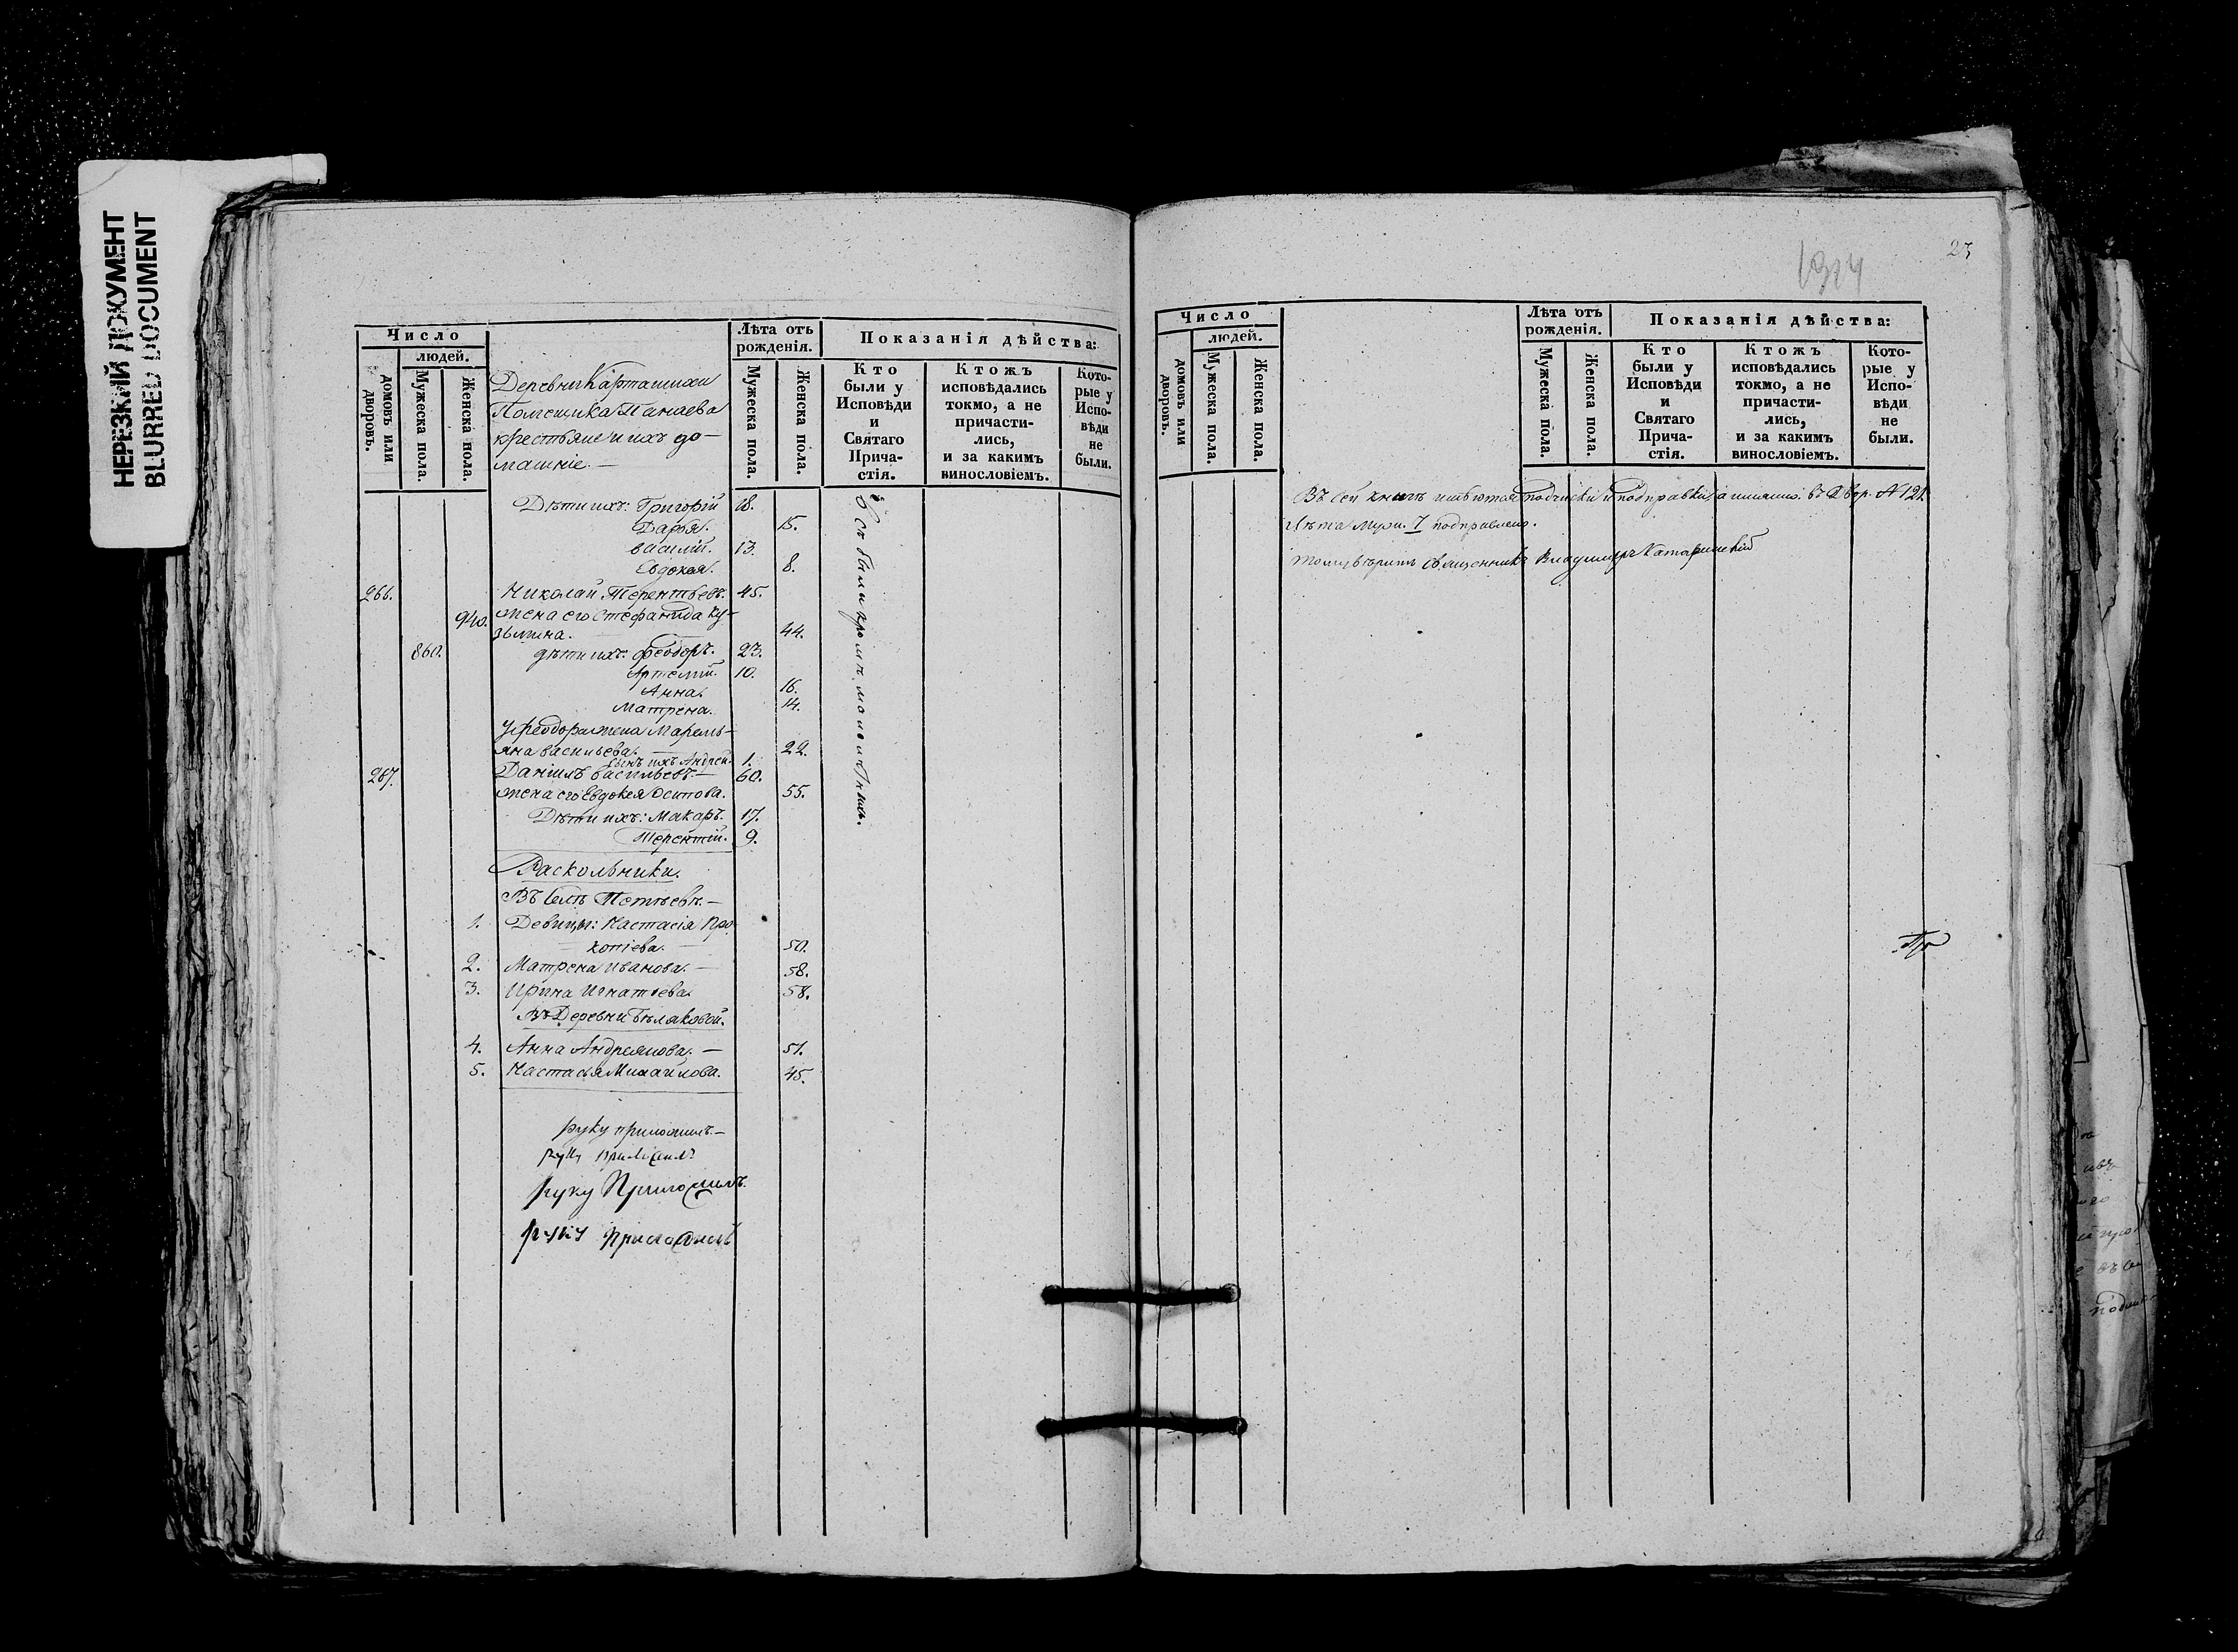 НЕРЕЗКИЙ ДОКУМЕНТ
BLURRED DOCUMENT
Число
людей.
домовъ или дворовъ.
Мужеска пола.
Женска пола.
Деревни Карташихи
Помещика Панаева
крестьяне и ихъ до-
машніе. —
Лѣта отъ рожденія.
Мужеска пола.
Женска пола.
Показанія дѣйства:
Кто были у Исповѣди и Святаго Прича-стія.
Ктожъ исповѣдались токмо, а не причасти-лись, и за какимъ винословіемъ.
Кото-рые у Испо-вѣди не были.
Дѣти ихъ: Григорій 18.
Дарья. 15.
Василій. 13.
Евдокея. 8.
266. Николай Терентьевъ. 45.
940. жена его Стефанида Ку-
зьмина. 44.
860. дѣти ихъ: Феодоръ. 23.
Артемій. 10.
Анна. 16.
Матрена. 14.
У Феодора жена Маремь-
яна Васильева. — 22.
Сынъ ихъ Андрей. 1.
267. Даніилъ Васильевъ. — 60.
жена его Евдокея Осипова. 55.
Дѣти ихъ: Макаръ. 17.
Терентій. 9.
Всѣ были кромѣ малолѣтныхъ.
Раскольники.
Въ Селѣ —
1. Девицы: Настасія Про-
копіева. — 50.
2. Матрена Иванова. — 58.
3. Ирина Игнатьева. 58.
Въ Деревни Бѣляковой.
4. Анна Андреянова. — 51.
5. Настасья Михайлова. 45.
руку приложилъ. —
руку приложилъ
руку Приложилъ.
руку приложилъ
1314
23
Число
людей.
домовъ или дворовъ.
Мужеска пола.
Женска пола.
Лѣта отъ рожденія.
Мужеска пола.
Женска пола.
Показанія дѣйства:
Кто были у Исповѣди и Святаго Прича-стія.
Ктожъ исповѣдались токмо, а не причасти-лись, и за какимъ винословіемъ.
Кото-рые у Испо-вѣди не были.
Въ сей книгѣ имѣются подчистки и подправки, а именно: въ двор. № 121.
Лѣта Муж. 7 подправлено.
Священникъ Владимиръ Катаринскій